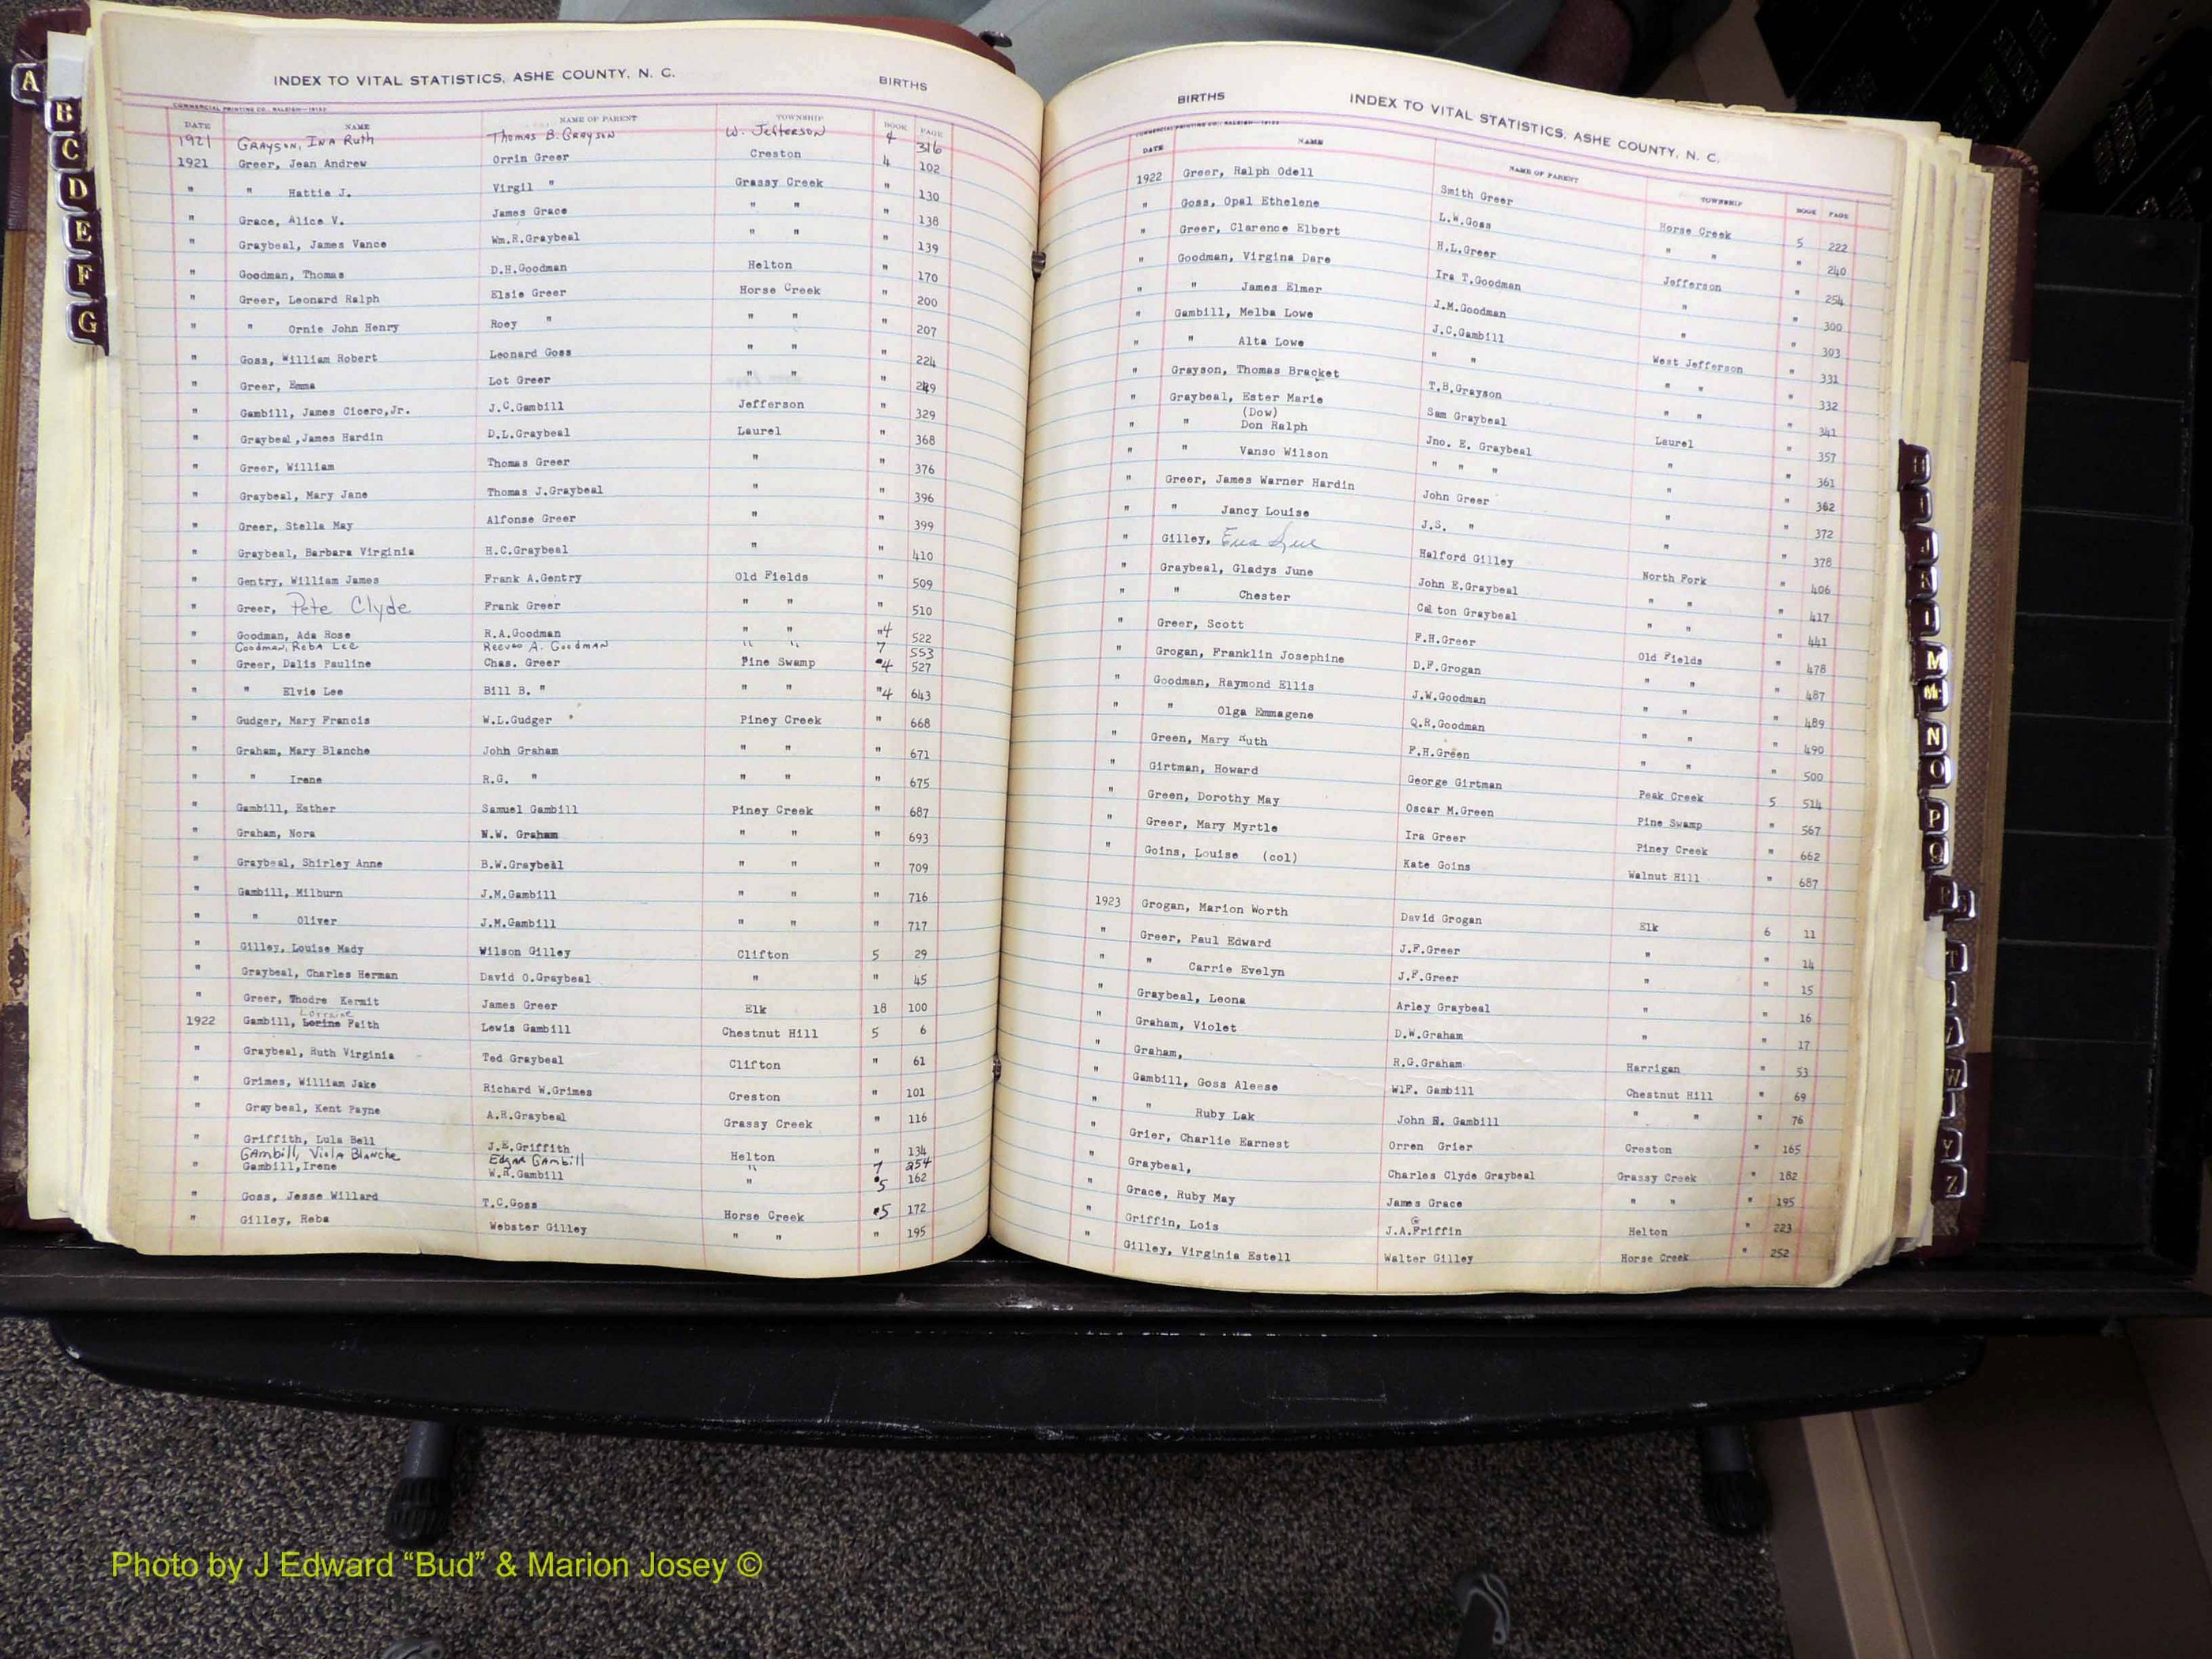 INDEX TO VITAL STATISTICS, ASHE COUNTY, N. C. BIRTHS
COMMERCIAL PRINTING CO., RALEIGH
DATE NAME NAME OF PARENT TOWNSHIP BOOK PAGE
1921 GRAYSON, INA Ruth THOMAS B. GRAYSON W. Jefferson 4 316
1921 Greer, Jean Andrew Orrin Greer Creston 4 102
" " Hattie J. Virgil " Grassy Creek " 130
" Grace, Alice V. James Grace " " " 138
" Graybeal, James Vance Wm.R.Graybeal " " " 139
" Goodman, Thomas D.H.Goodman Helton " 170
" Greer, Leonard Ralph Elsie Greer Horse Creek " 200
" " Ornie John Henry Roey " " " " 207
" Goss, William Robert Leonard Goss " " " 224
" Greer, Emma Lot Greer " " " 249
" Gambill, James Cicero,Jr. J.C.Gambill Jefferson " 329
" Graybeal,James Hardin D.L.Graybeal Laurel " 368
" Greer, William Thomas Greer " " 376
" Graybeal, Mary Jane Thomas J.Graybeal " " 396
" Greer, Stella May Alfonse Greer " " 399
" Graybeal, Barbara Virginia H.C.Graybeal " " 410
" Gentry, William James Frank A.Gentry Old Fields " 509
" Greer, Pete Clyde Frank Greer " " " 510
" Goodman, Ada Rose R.A.Goodman " " "4 522
Goodman, Reba Lee Reeves A. Goodman " " 7 553
" Greer, Dalis Pauline Chas. Greer Pine Swamp "4 527
" " Elvie Lee Bill B. " " " "4 643
" Gudger, Mary Francis W.L.Gudger Piney Creek " 668
" Graham, Mary Blanche John Graham " " " 671
" " Irene R.G. " " " " 675
" Gambill, Esther Samuel Gambill Piney Creek " 687
" Graham, Nora N.W. Graham " " " 693
" Graybeal, Shirley Anne B.W.Graybeal " " " 709
" Gambill, Milburn J.M.Gambill " " " 716
" " Oliver J.M.Gambill " " " 717
" Gilley, Louise Mady Wilson Gilley Clifton 5 29
" Graybeal, Charles Herman David O.Graybeal " " 45
" Greer, Thodre Kermit James Greer Elk 18 100
Lorraine
1922 Gambill, Lorine Faith Lewis Gambill Chestnut Hill 5 6
" Graybeal, Ruth Virginia Ted Graybeal Clifton " 61
" Grimes, William Jake Richard W.Grimes Creston " 101
" Graybeal, Kent Payne A.R.Graybeal Grassy Creek " 116
" Griffith, Lula Bell J.E.Griffith Helton " 134
GAmbill, Viola Blanche Edgar GAmbill " 7 254
" Gambill,Irene W.R.Gambill " "5 162
" Goss, Jesse Willard T.C.Goss Horse Creek "5 172
" Gilley, Reba Webster Gilley " " " 195
BIRTHS INDEX TO VITAL STATISTICS, ASHE COUNTY, N. C.
DATE NAME NAME OF PARENT TOWNSHIP BOOK PAGE
1922 Greer, Ralph Odell Smith Greer Horse Creek 5 222
" Goss, Opal Ethelene L.W.Goss " " " 240
" Greer, Clarence Elbert H.L.Greer Jefferson " 254
" Goodman, Virgina Dare Ira T.Goodman " " 300
" " James Elmer J.M.Goodman " " 303
" Gambill, Melba Lowe J.C.Gambill West Jefferson " 331
" " Alta Lowe " " " " " 332
" Grayson, Thomas Bracket T.B.Grayson " " " 341
" Graybeal, Ester Marie Sam Graybeal Laurel " 357
(Dow)
" " Don Ralph Jno. E. Graybeal " " 361
" " Vanso Wilson " " " " 362
" Greer, James Warner Hardin John Greer " " 372
" " Jancy Louise J.S. " " " 378
" Gilley, Halford Gilley North Fork " 406
" Graybeal, Gladys June John E.Graybeal " " " 417
" " Chester Calton Graybeal " " " 441
" Greer, Scott F.H.Greer Old Fields " 478
" Grogan, Franklin Josephine D.F.Grogan " " " 487
" Goodman, Raymond Ellis J.W.Goodman " " " 489
" " Olga Emmagene Q.R.Goodman " " " 490
" Green, Mary Ruth F.H.Green " " " 500
" Girtman, Howard George Girtman Peak Creek 5 514
" Green, Dorothy May Oscar M.Green Pine Swamp " 567
" Greer, Mary Myrtle Ira Greer Piney Creek " 662
" Goins, Louise (col) Kate Goins Walnut Hill " 687
1923 Grogan, Marion Worth David Grogan Elk 6 11
" Greer, Paul Edward J.F.Greer " " 14
" " Carrie Evelyn J.F.Greer " " 15
" Graybeal, Leona Arley Graybeal " " 16
" Graham, Violet D.W.Graham " " 17
" Graham, R.G.Graham Harrigan " 53
" Gambill, Goss Aleese W1F. Gambill Chestnut Hill " 69
" " Ruby Lak John E. Gambill " " " 76
" Grier, Charlie Earnest Orren Grier Creston " 165
" Graybeal, Charles Clyde Graybeal Grassy Creek " 182
" Grace, Ruby May James Grace " " " 195
" Griffin, Lois J.A.Griffin Helton " 223
" Gilley, Virginia Estell Walter Gilley Horse Creek " 252
A
B
C
D
E
F
G
H
I
J
K
L
M
Mc
N
O
P
Q
R
S
T
W
Y
Z
Photo by J Edward “Bud” & Marion Josey ©